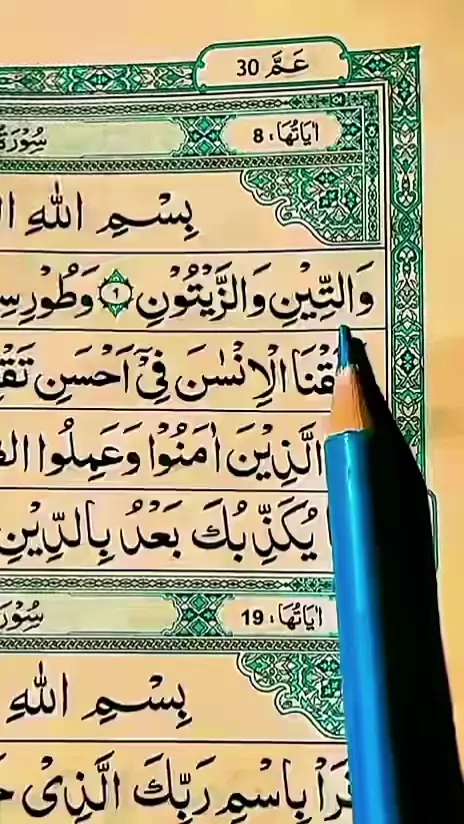 عَمَّ 30
اٰيَاتُهَا: 8
بِسْمِ اللهِ
وَالتِّيْنِ وَالزَّيْتُوْنِ ۙ﴿۱﴾ وَطُوْرِ
الْاِنْسٰنَ فِيْٓ اَحْسَنِ
الَّذِيْنَ اٰمَنُوْا وَعَمِلُوا
يُكَذِّبُكَ بَعْدُ بِالدِّيْنِ
اٰيَاتُهَا: 19
بِسْمِ اللهِ
بِاسْمِ رَبِّكَ الَّذِيْ